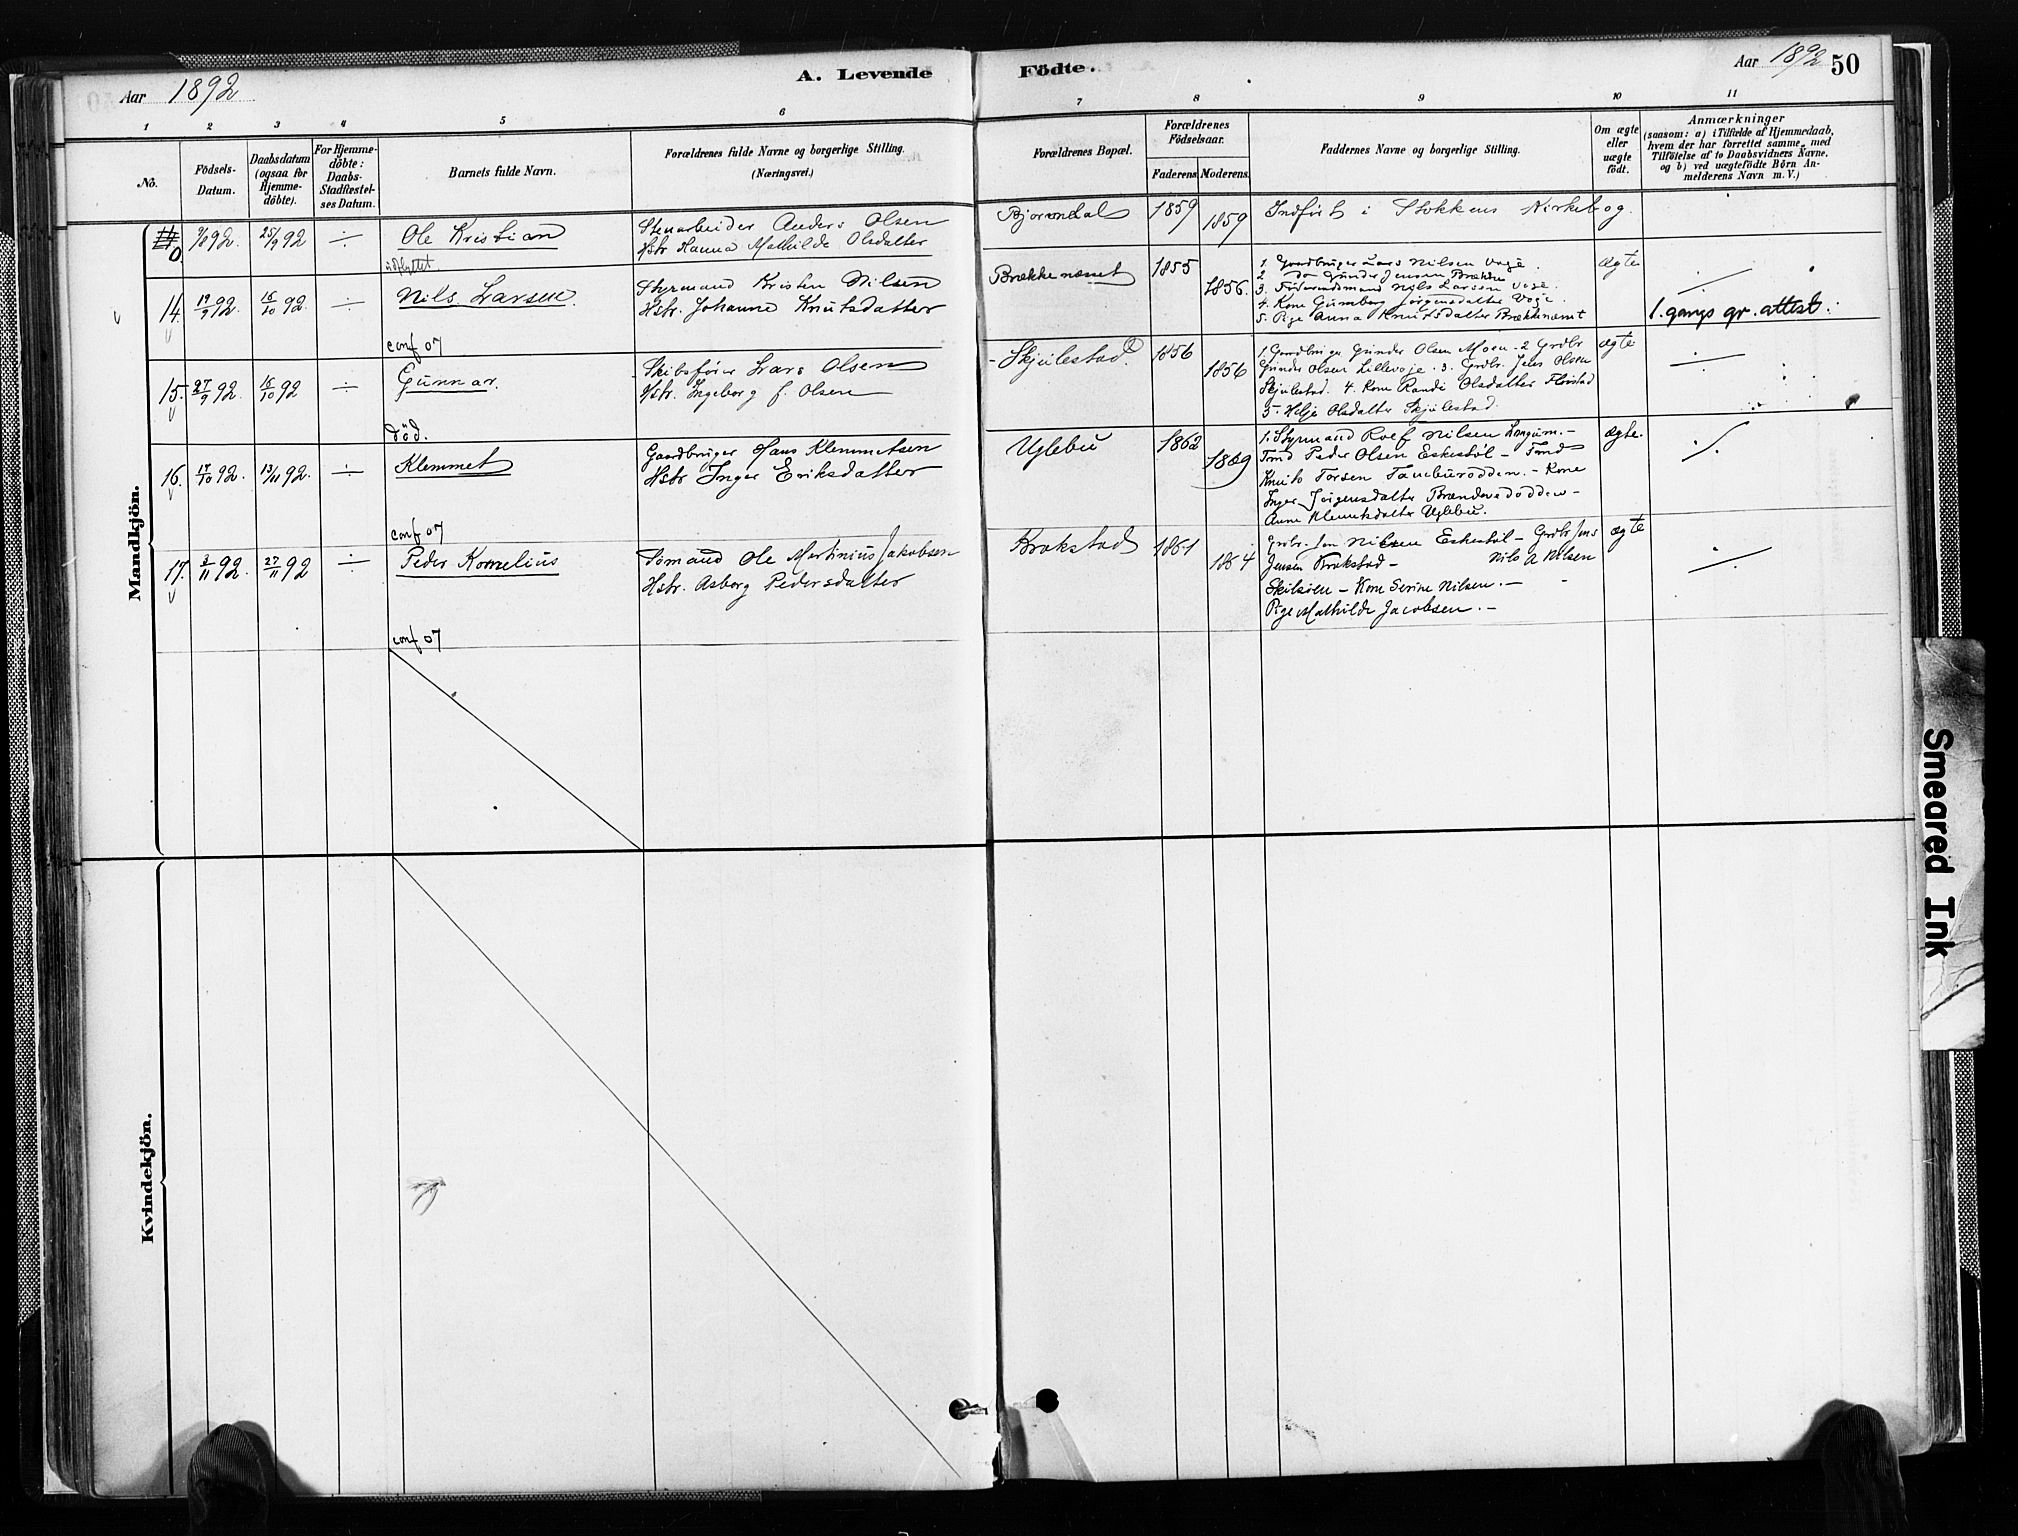 Aar 1892
A. Levende Födte.
Aar 1892 50
1 2 3 4 5 6 7 8 9 10 11
No.
Födsels-
Datum.
Daabsdatum
(ogsaa for
Hjemme-
döbte).
For Hjemme-
döbte:
Daabs-
Stadfæstel-
ses Datum.
Barnets fulde Navn.
Forældrenes fulde Navne og borgerlige Stilling.
(Næringsvei.)
Forældrenes Bopæl.
Forældrenes
Födselsaar.
Faderens. Moderens.
Faddernes Navne og borgerlige Stilling.
Om ægte
eller
uægte
födt.
Anmærkninger
(saasom: a) i Tilfælde af Hjemmedaab,
hvem der har forrettet samme, med
Tilföielse af to Daabsvidners Navne,
og b) ved uægtefödte Börn An-
melderens Navn m. V.)
Mandkjön.
0
25/9 92
÷
Ole Kristian
udflyttet.
Stenarbeider Anders Olsen
Hstr Hanna Mathilde Olsdatter
Bjorendal
1859
1859
Indført i Stokkens Kirkebog.
14.
19/9 92.
16/10 92.
÷
Nils Larsen.
conf 07
Styrmand Kristen Nilsen
Hstr. Johanne Knutsdatter
Brækkenæmet
1855
1856.
1. Gaardbruger Lars Nilsen Voje.
2 do Gunder Jensen Brække
3. Föderaadsmand Nils Larsen Voje.
4. Kone Gumborg Jörgensdatter Voje.
5. Pige Anna Knutsdatter Brækkenæmt
ægte
÷
1. gangs gr. attest.
15.
27/9 92.
16/10 92
÷
Gunnar.
död.
Skibsfører Lars Olsen
Hstr. Ingeborg f. Olsen
Skjulestad
1856
1856
1. Gaardbruger Gunder Olsen Moen - 2 Grdbr
Gunder Olsen Lillevoje. 3. Grdbr. Jens Olsen
Skjulestad. 4. Kone Randi Olsdatter Flovstad
5. Helje Olsdatter Skjulestad.
ægte
÷
16.
17/10 92.
13/11 92.
÷
Klemmet
conf 07
Gaardbruger Hans Klemmetsen
Hstr Inger Eriksdatter
Uglebu
1862
1869
1. Styrmand Rolf Nilsen Longum. -
Tmd Peder Olsen Eskestöl - Tmd
Knut Torsen Tamburodden. - Kone
Inger Jörgensdatter
Anne Klemetsdatter Uglebu.
ægte.
÷
17.
3/11 92.
27/11 92
÷
Peder Kornelius
conf 07
Sømand Ole Martinius Jakobsen
Hstr. Asborg Pedersdatter
Krokstad
1861
1864
Grdbr. Jon Nilsen Eskestöl - Grdbr Jens
Jensen Krokstad - Nils A Nilsen
Skilsöen - Kone Serine Nilsen. -
Pige Mathilde Jacobsen. -
ægte
÷
Kvindekjön.
Smeared Ink